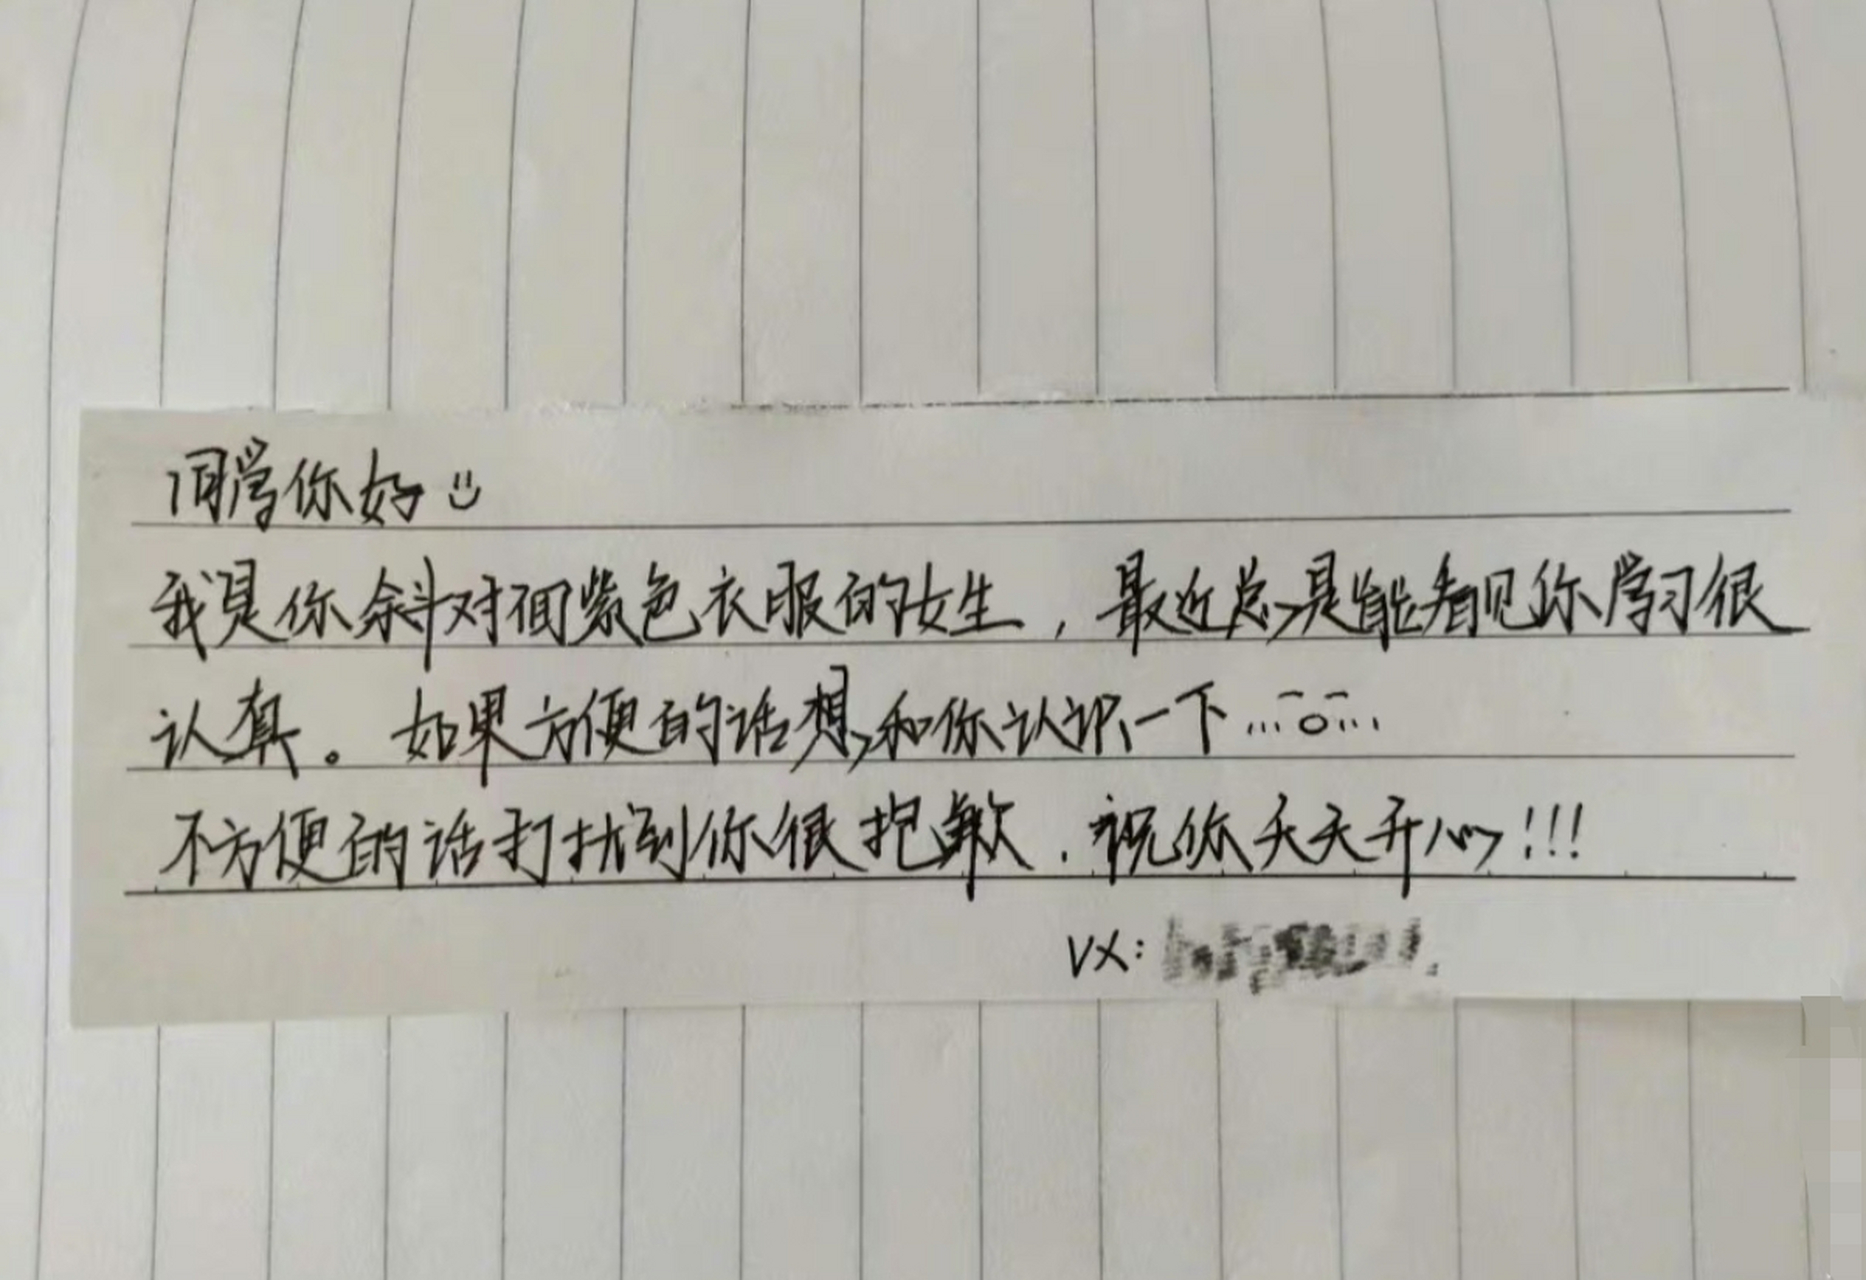 同学你好
我是你斜对面紫色衣服的女生，最近总是能看见你学习很
认真。如果方便的话想和你认识一下
不方便的话打扰到你很抱歉，祝你天天开心!!!
VX: